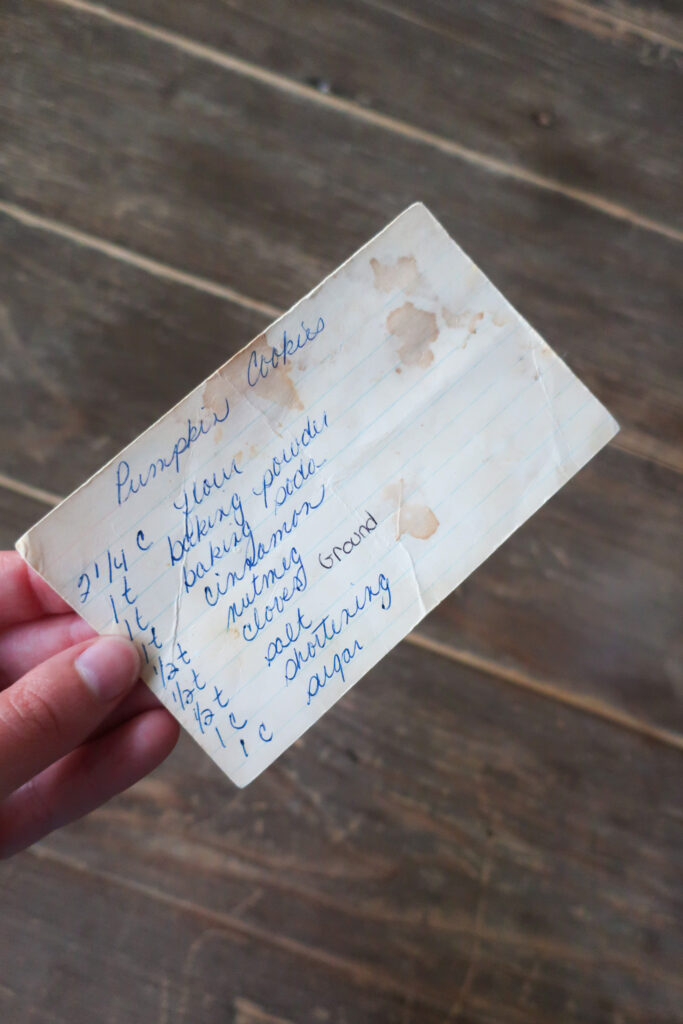 Pumpkin Cookies
2 1/4 c flour
1 t baking powder
1 t baking soda
1 t cinnamon
1/2 t nutmeg
1/2 t cloves Ground
1/2 t salt
1 c shortening
1 c sugar